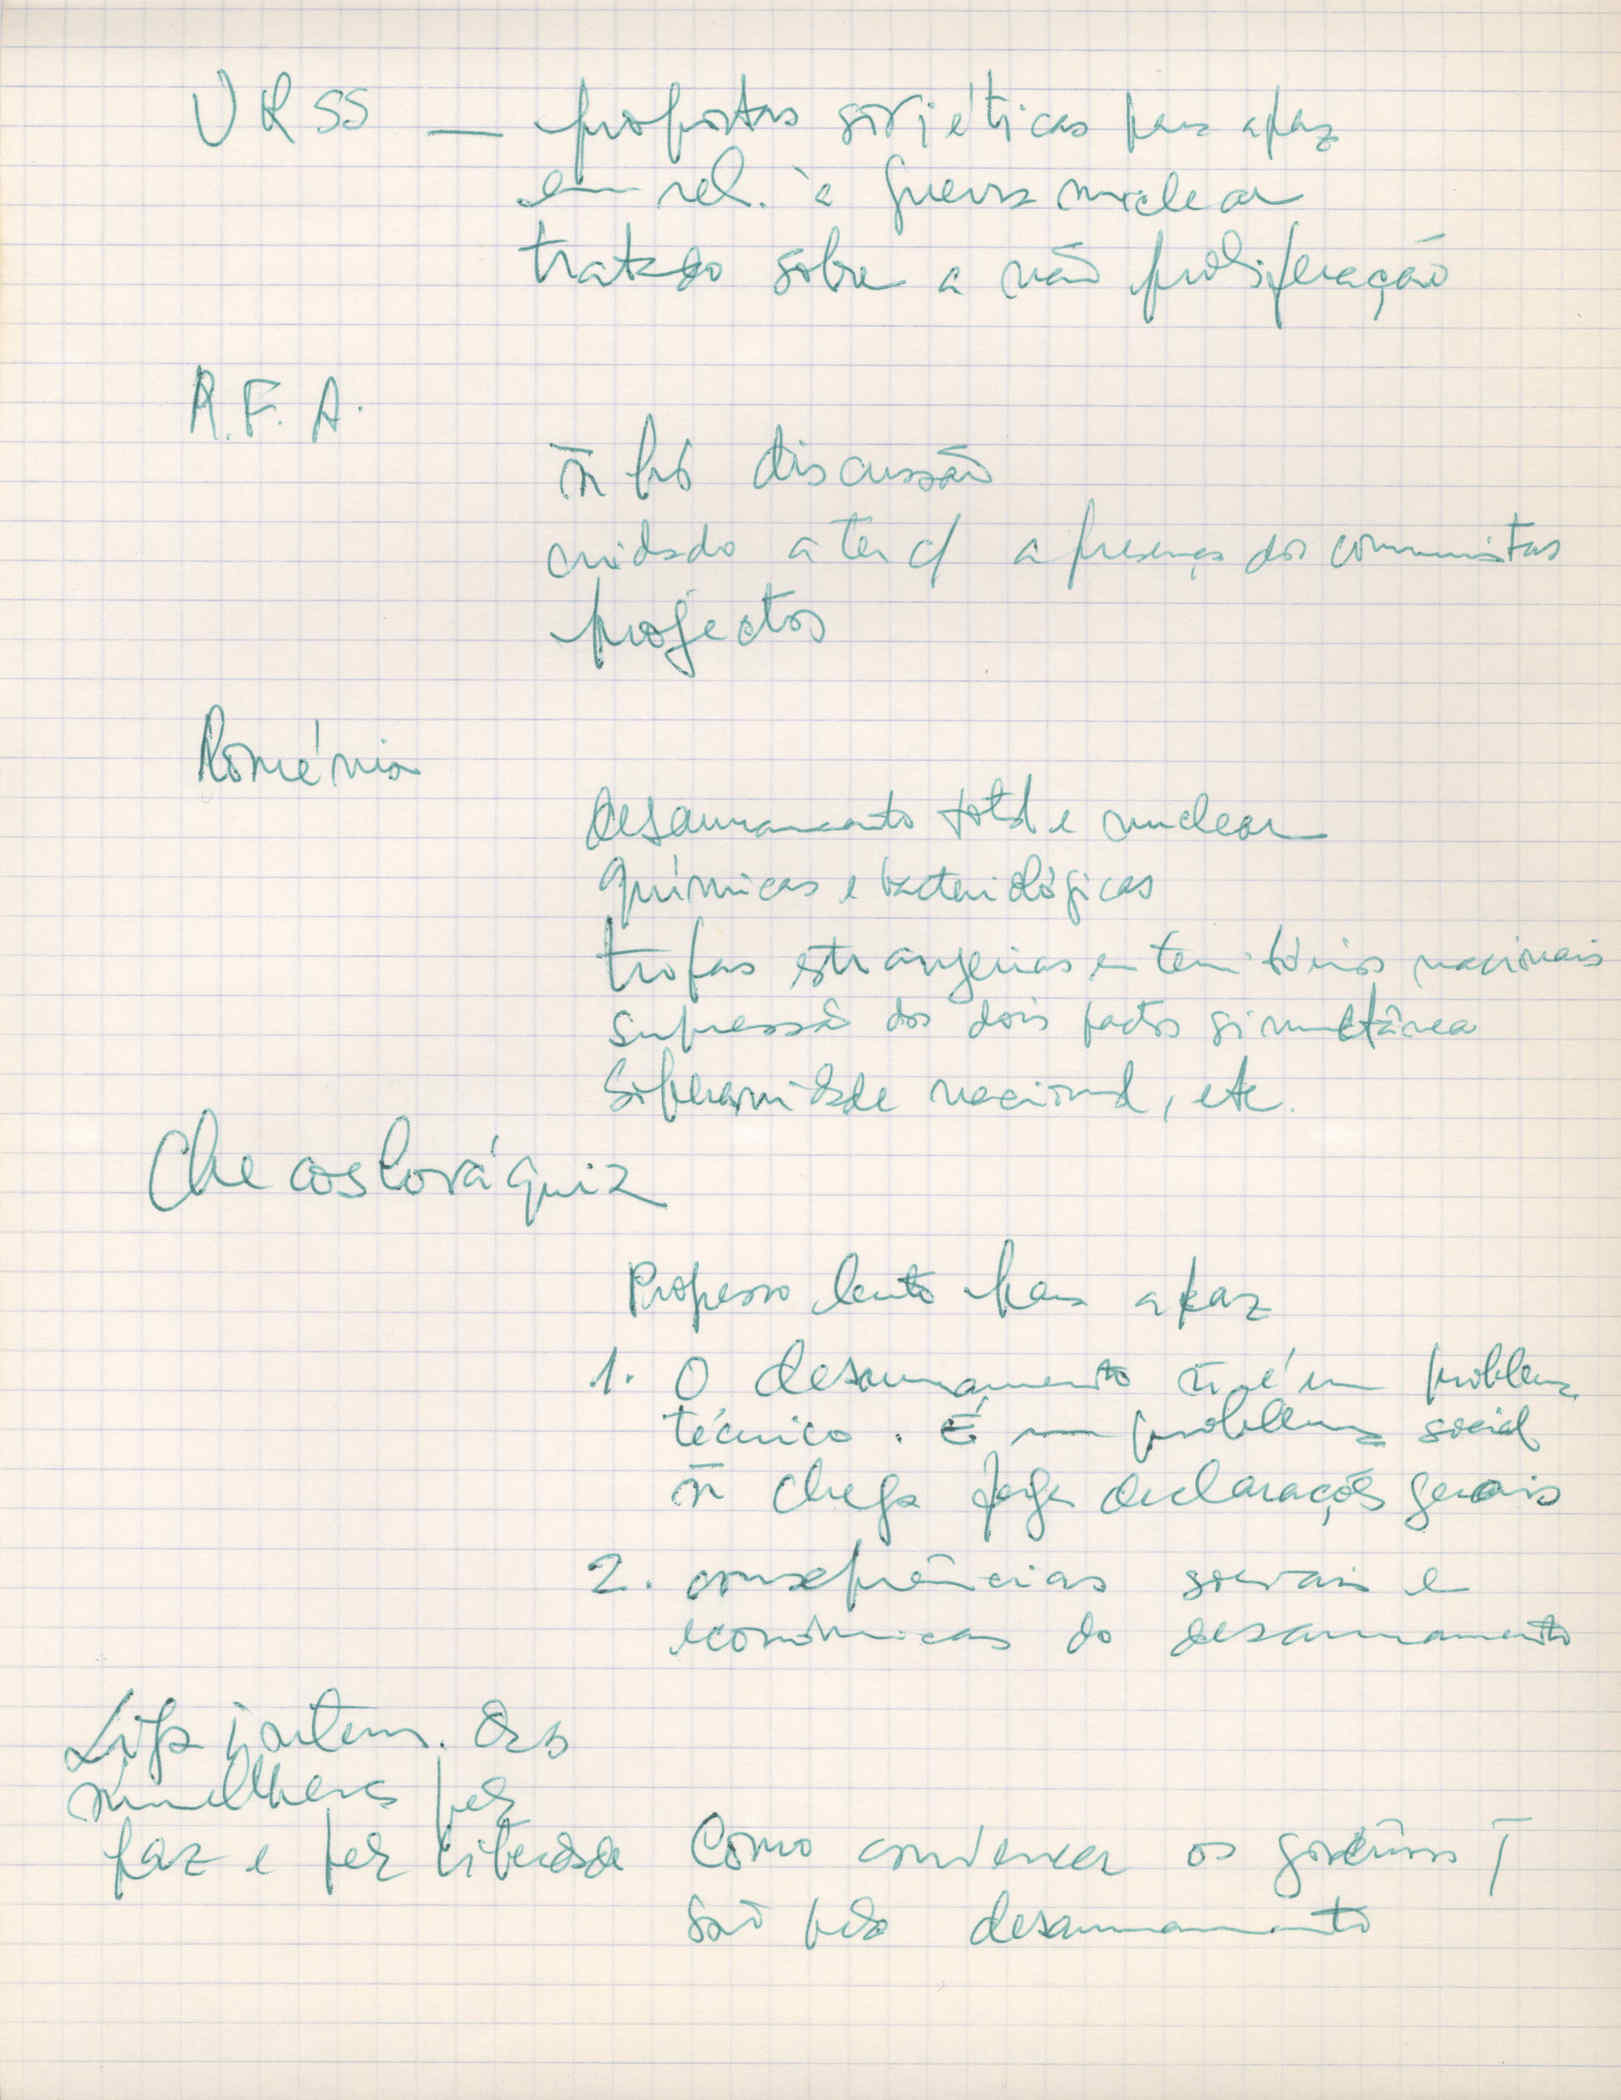 URSS — propostas soviéticas para a paz
em rel. à guerra nuclear
tratado sobre a não proliferação
R.F.A.
ñ há discussão
cuidado a ter c/ a presença dos comunistas
projectos
Roménia
desarmamento total e nuclear
químicas e bacteriológicas
tropas estrangeiras em territórios nacionais
supressão dos dois pactos simultânea
soberanidade nacional, etc.
Checoslováquia
Progresso lento para a paz
1. O desarmamento ñ é um problema
técnico. É um problema social
ñ chega fazer declarações gerais
2. consequências sociais e
económicas do desarmamento
Liga intern. das
mulheres pela
paz e pela liberdade
Como convencer os governos
são pelo desarmamento